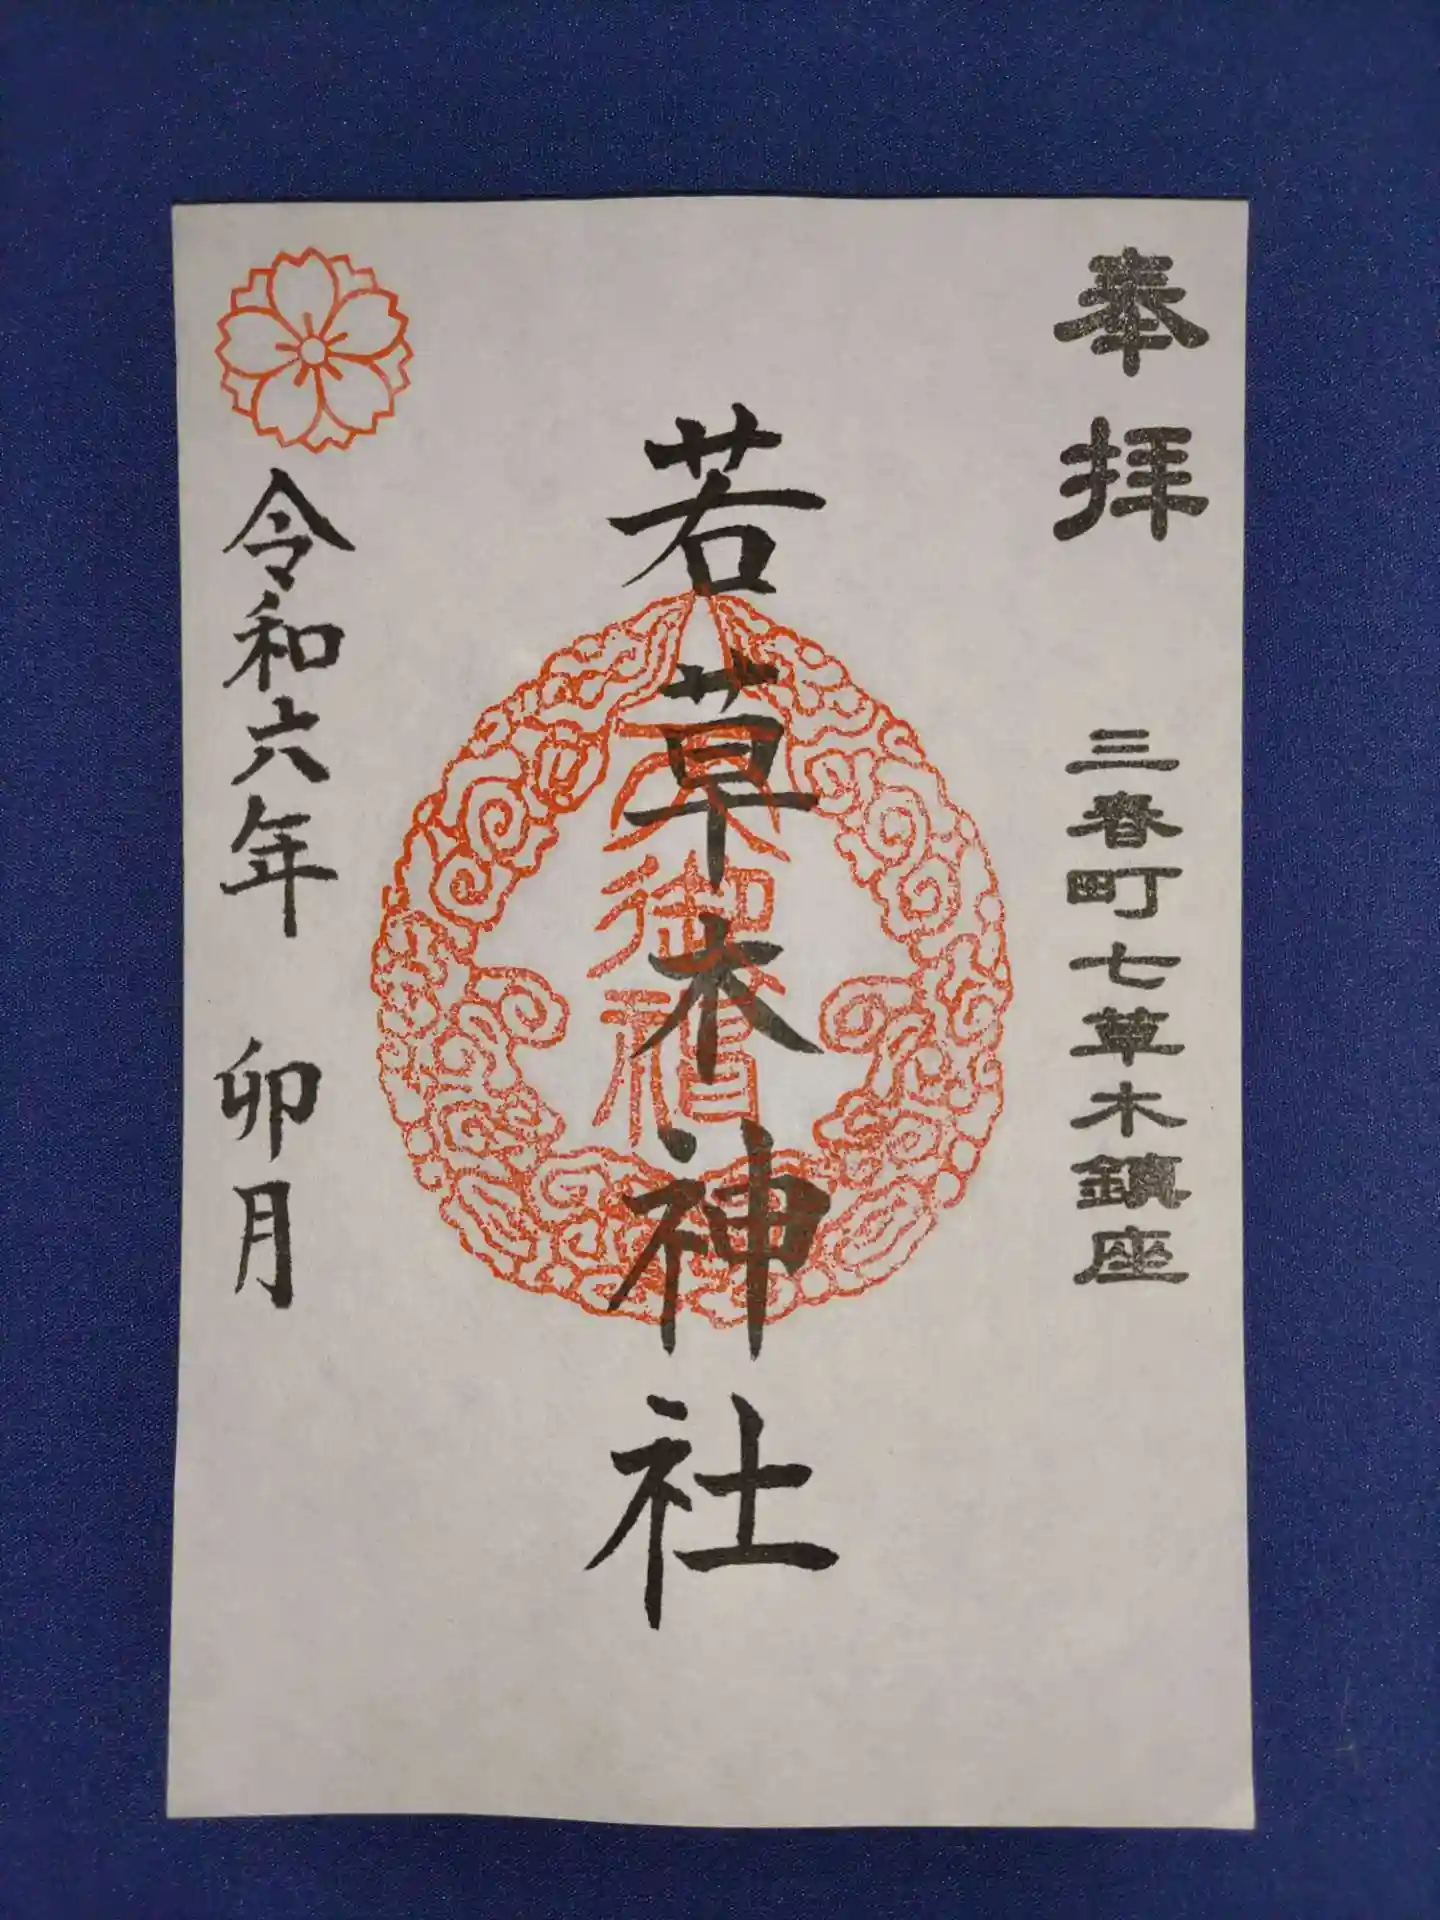 奉拝
三春町七草木鎮座
若草木神社
令和六年 卯月